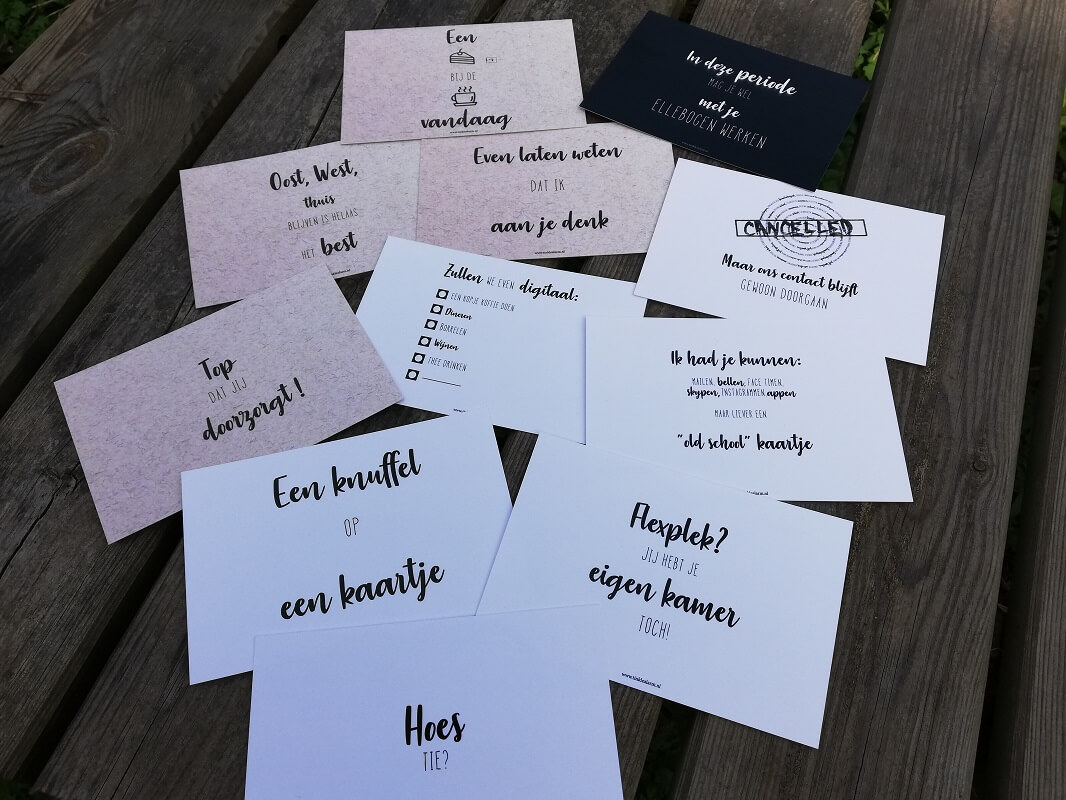 Een
BIJ DE
vandaag
In deze periode
MAG JE WEL
met je
ELLEBOGEN WERKEN
Oost, West,
thuis
BLIJVEN IS HELAAS
HET best
Even laten weten
DAT IK
aan je denk
CANCELLED
Maar ons contact blijft
GEWOON DOORGAAN
Zullen WE EVEN digitaal:
EEN KOPJE KOFFIE DOEN
Dineren
BORRELEN
Wijnen
THEE DRINKEN
Top
DAT JIJ
doorzorgt!
Ik had je kunnen:
MAILEN, bellen, FACE TIMEN,
skypen, INSTAGRAMMEN, appen
MAAR LIEVER EEN
"old school" kaartje
Een knuffel
OP
een kaartje
Flexplek?
JIJ HEBT JE
eigen kamer
TOCH!
Hoes
TIE?